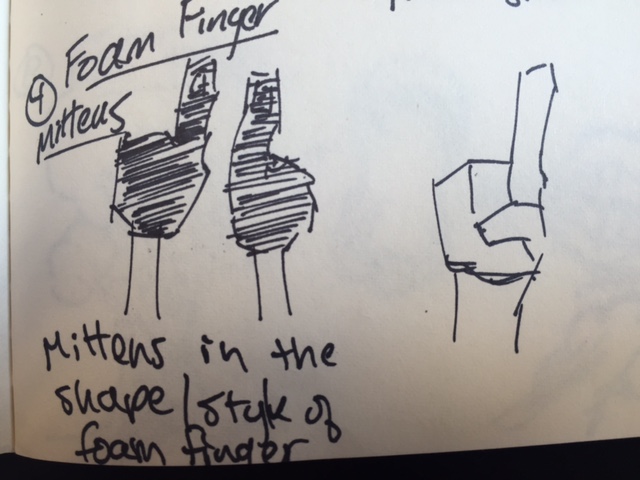 ④ Foam Finger
Mittens
#1
#1
Mittens in the
shape/style of
foam finger